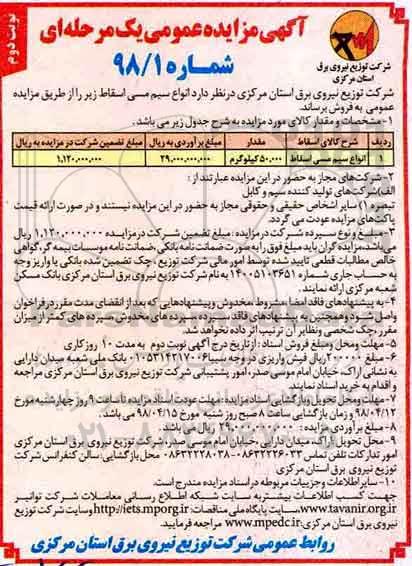 نوبت دوم
آگهی مزایده عمومی یک مرحله‌ای
شماره ۹۸/۱
شرکت توزیع نیروی برق
استان مرکزی
شرکت توزیع نیروی برق استان مرکزی درنظر دارد انواع سیم مسی اسقاط زیر را از طریق مزایده
عمومی به فروش برساند.
۱-مشخصات و مقدار کالای مورد مزایده به شرح جدول زیر می باشد.
ردیف شرح کالای اسقاط مقدار مبلغ برآوردی به ریال مبلغ تضمین شرکت در مزایده به ریال
۱ انواع سیم مسی اسقاط ۵۰,۰۰۰ کیلوگرم ۲۹,۰۰۰,۰۰۰,۰۰۰ ۱,۱۲۰,۰۰۰,۰۰۰
۲-شرکت‌های مجاز به حضور در این مزایده عبارتند از:
الف)شرکت‌های تولید کننده سیم و کابل
تبصره۱) سایر اشخاص حقیقی و حقوقی مجاز به حضور در این مزایده نیستند و در صورت ارائه قیمت
پاکت‌های مزایده عودت می گردد.
۳-مبلغ و نوع سپرده شرکت در مزایده: مبلغ تضمین شرکت درمزایده ۱,۱۲۰,۰۰۰,۰۰۰ ریال
می باشد،مزایده گران باید مبلغ فوق را به صورت ضمانت نامه بانکی،ضمانت نامه موسسات بیمه گر،گواهی
خالص مطالبات قطعی تایید شده توسط امور مالی شرکت توزیع ، چک تضمین شده بانکی یا واریز وجه
به حساب جاری شماره ۱۴۰۰۵۱۰۳۶۵۱ به نام شرکت توزیع نیروی برق استان مرکزی بانک مسکن
شعبه مرکزی ارائه نمایند.
۴-به پیشنهادهای فاقد امضا،مشروط،مخدوش وپیشنهادهایی که بعد از انقضای مدت مقرر درفراخوان
واصل شود وهمچنین به پیشنهادهای فاقد سپرده،سپرده های مخدوش،سپرده های کمتر از میزان
مقرر،چک شخصی ونظایر آن ترتیب اثر داده نخواهد شد.
۵- مهلت ومحل و مبلغ فروش اسناد : از تاریخ درج آگهی نوبت دوم به مدت ۱۰ روز کاری
۶- مبلغ ۲۰۰,۰۰۰ ریال فیش واریزی در وجه سیبا ۰۱۰۵۳۱۴۲۱۷۰۰۶ بانک ملی شعبه میدان دارایی
به نشانی اراک، خیابان امام موسی صدر، امور پشتیبانی شرکت توزیع نیروی برق استان مرکزی مراجعه
و اقدام به خرید اسناد نمایند.
۷-مهلت ومحل تحویل وبازگشایی اسناد مزایده:مهلت عودت اسناد مزایده تا ساعت ۹ روز چهارشنبه مورخ
۹۸/۰۴/۱۲ و زمان بازگشایی ساعت ۸ صبح روز شنبه مورخ ۹۸/۰۴/۱۵ می باشد.
۸- مبلغ برآوردی مزایده : ۲۹,۰۰۰,۰۰۰,۰۰۰ ریال می باشد.
۹- محل تحویل: اراک، میدان دارایی ،خیابان امام موسی صدر، شرکت توزیع نیروی برق استان مرکزی
امور تدارکات تلفن تماس ۰۸۶۳۲۲۶۰۳۳-۰۸۶۳۲۲۲۸۰۳۸ محل بازگشایی:سالن کنفرانس شرکت
توزیع نیروی برق استان مرکزی
۱۰- سایر اطلاعات وجزییات مربوطه در اسناد مزایده مندرج است.
جهت کسب اطلاعات بیشتر به سایت شبکه اطلاع رسانی معاملات شرکت توانیر
www.tavanir.org.ir،سایت پایگاه ملی مناقصات http://iets.mporg.ir وسایت شرکت توزیع
نیروی برق استان مرکزی www.mpedc.ir مراجعه فرمایید.
روابط عمومی شرکت توزیع نیروی برق استان مرکزی